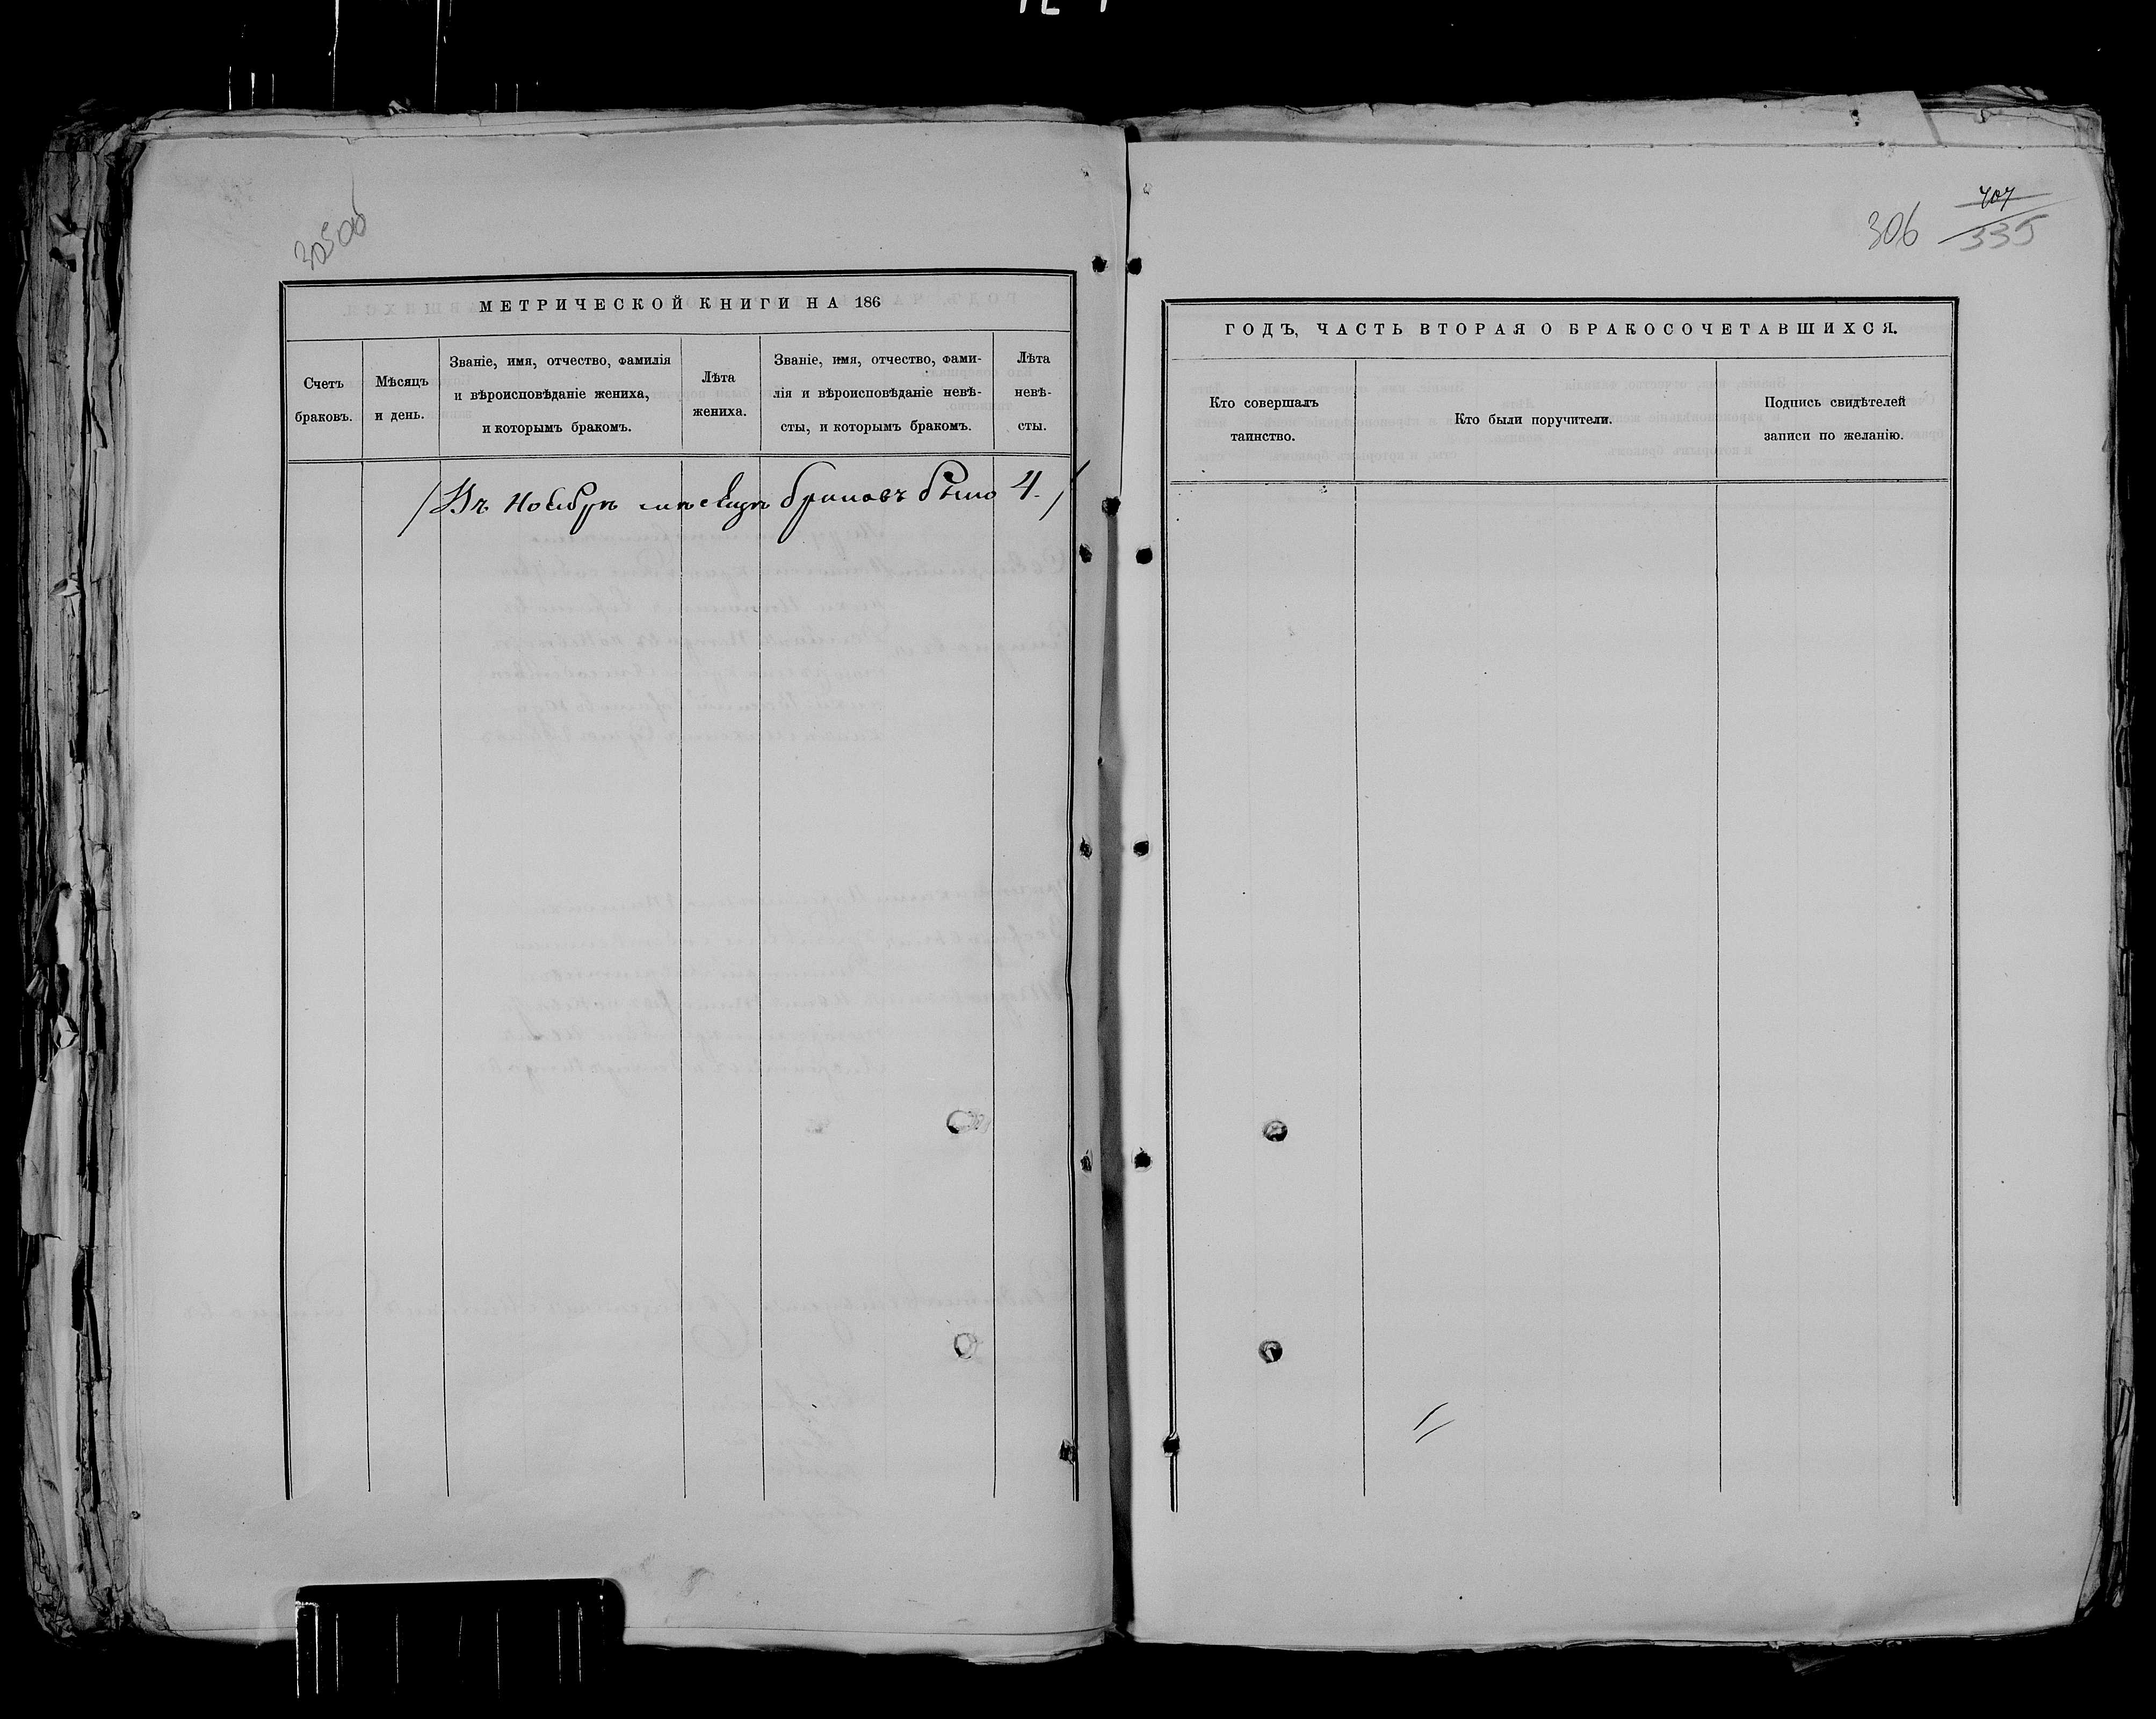 305об
МЕТРИЧЕСКОЙ КНИГИ НА 186
Счетъ
браковъ.
Мѣсяцъ
и день.
Званіе, имя, отчество, фамилія
и вѣроисповѣданіе жениха,
и которымъ бракомъ.
Лѣта
жениха.
Званіе, имя, отчество, фами-
лія и вѣроисповѣданіе невѣ-
сты, и которымъ бракомъ.
Лѣта
невѣ-
сты.
Въ Ноябрѣ мѣсяцѣ браковъ было 4.
407
306 335
ГОДЪ, ЧАСТЬ ВТОРАЯ О БРАКОСОЧЕТАВШИХСЯ.
Кто совершалъ
таинство.
Кто были поручители.
Подпись свидѣтелей
записи по желанію.